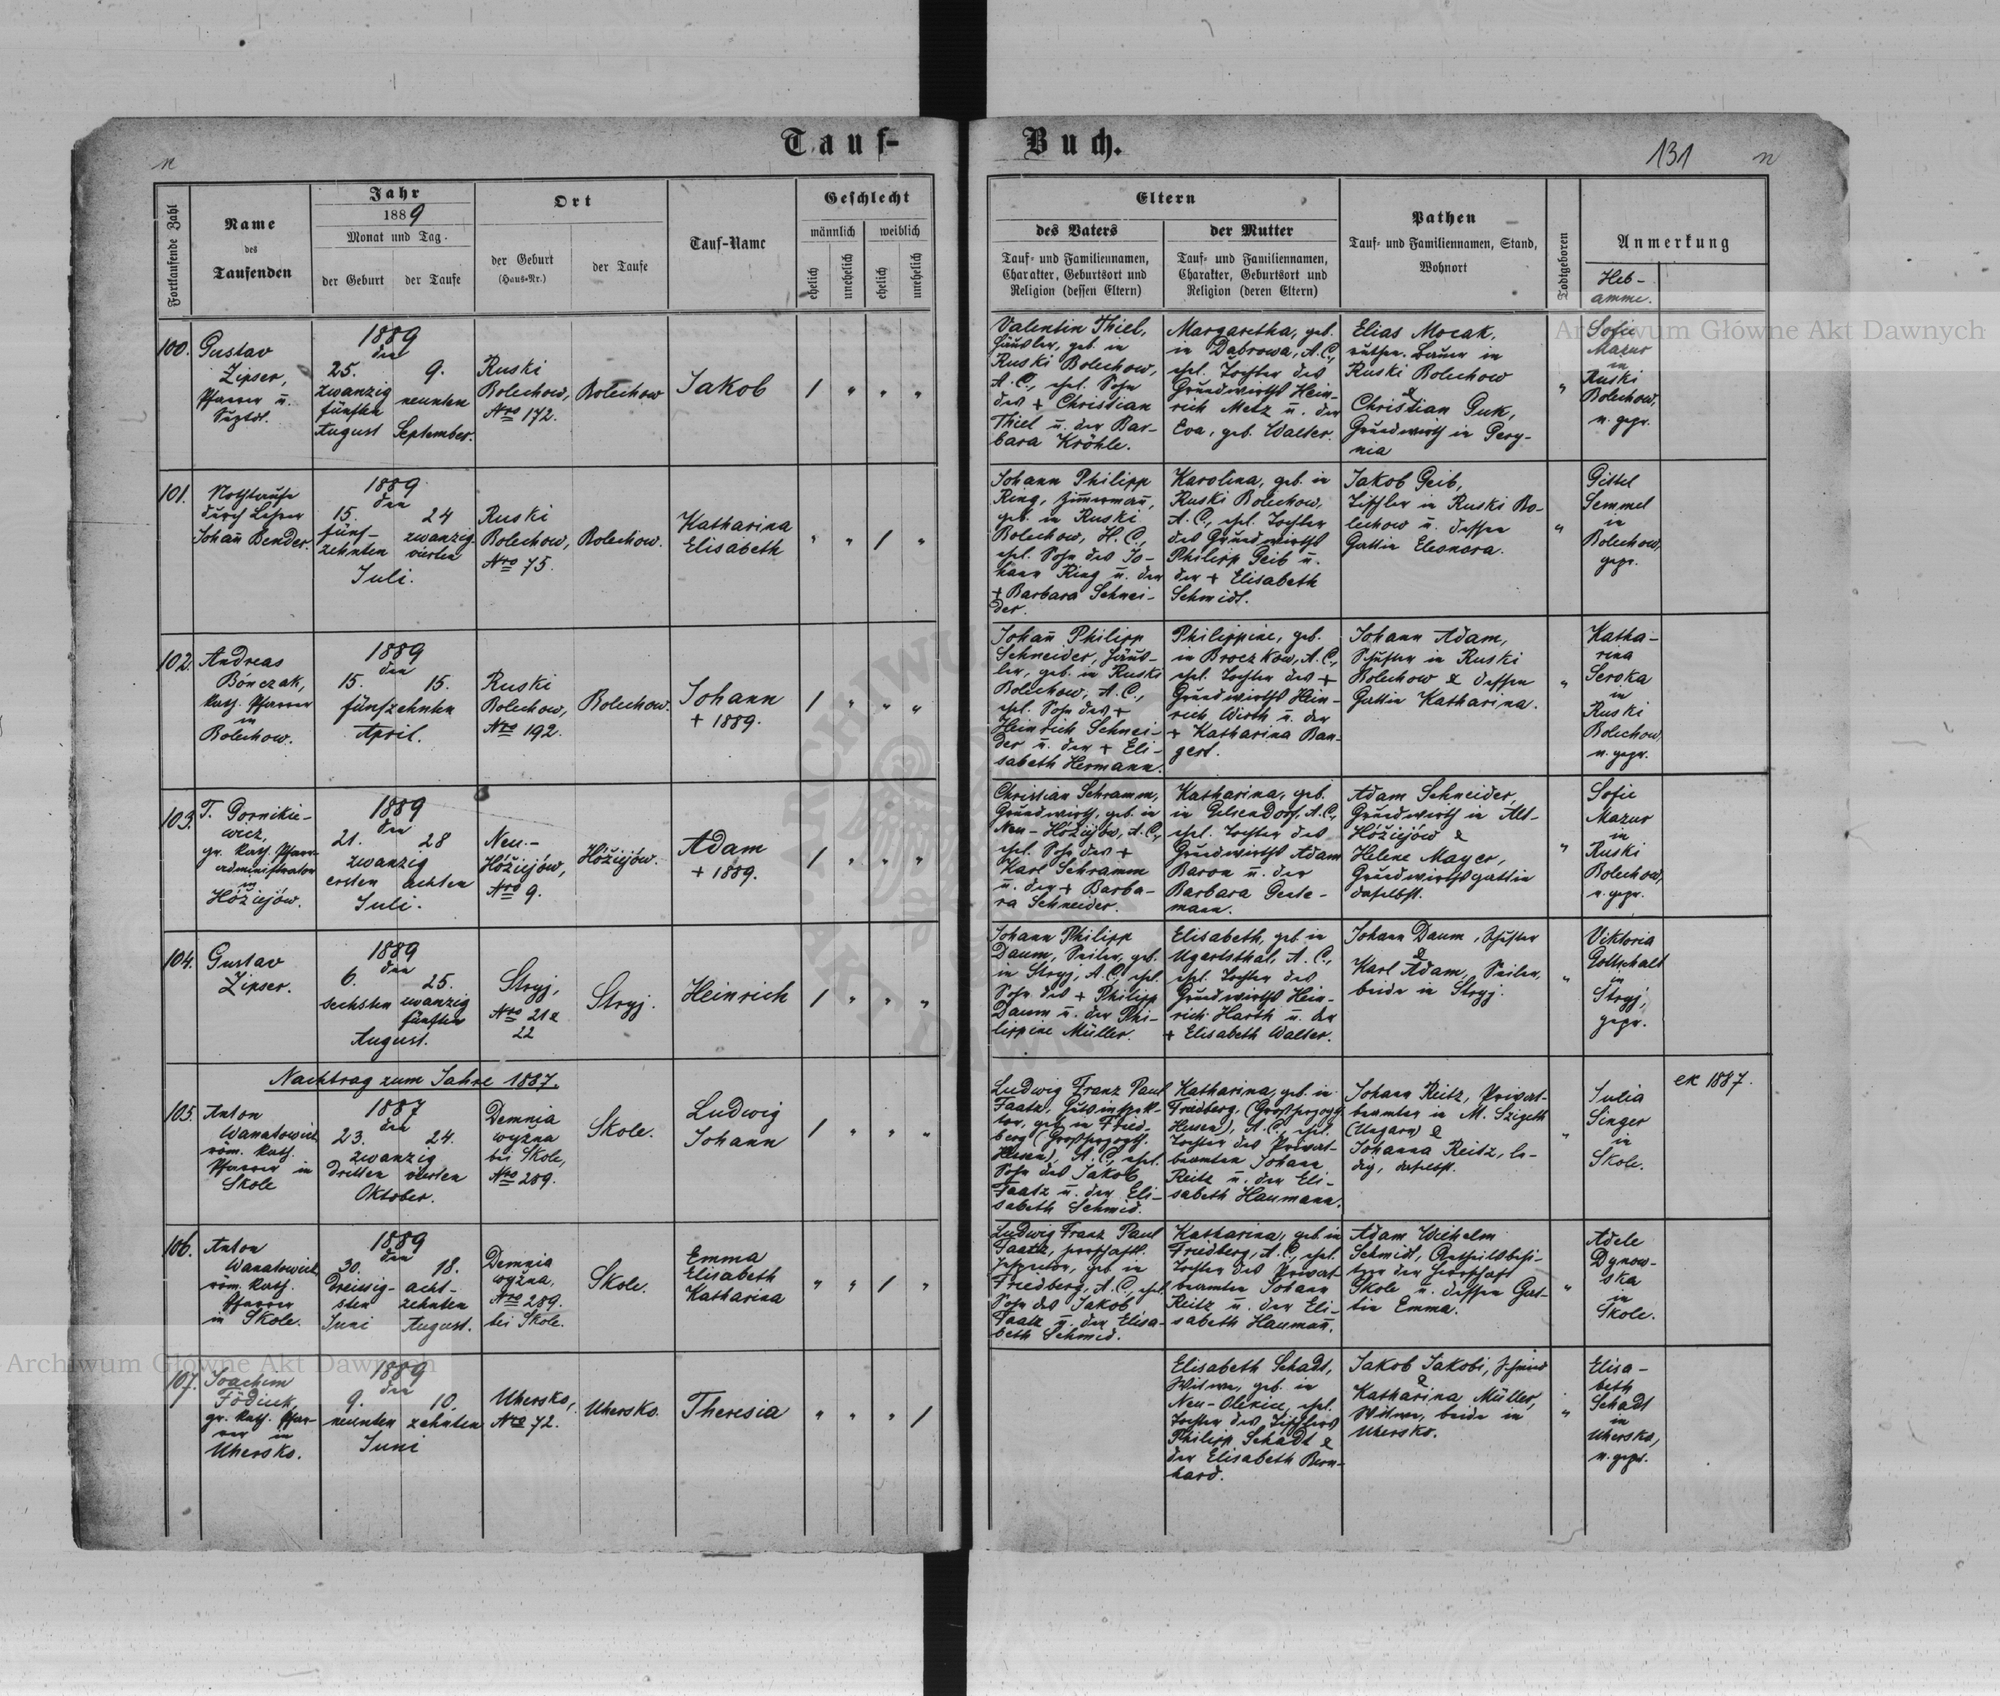 Tauf-
Buch.
131
n
n
Fortlaufende Zahl
Name
des
Taufenden
Jahr
1889
Monat und Tag.
der Geburt
der Taufe
Ort
der Geburt
(Haus-Nr.)
der Taufe
Tauf-Name
Geschlecht
männlich
weiblich
ehelich
unehelich
ehelich
unehelich
Eltern
des Vaters
Tauf- und Familiennamen,
Charakter, Geburtsort und
Religion (dessen Eltern)
der Mutter
Tauf- und Familiennamen,
Charakter, Geburtsort und
Religion (deren Eltern)
Pathen
Tauf- und Familiennamen, Stand,
Wohnort
Todtgeboren
Anmerkung
Heb-
amme.
100.
Gustav
Zipser,
Pfarrer u.
1889
den
25. 9.
zwanzig
fünften neunten
August September.
Ruski
Bolechow,
Nro 172.
Bolechow
Jakob
/ " " "
Valentin Thiel,
Häusler, geb. in
Ruski Bolechow,
A.C., ehel. Sohn
des + Christian
Thiel u. der Bar-
bara Kröhle.
Margaretha, geb.
in Dabrowa, A.C.,
ehel. Tochter des
Grundwirths Hein-
rich Metz u. der
Eva, geb. Walter.
Elias Mocak,
ruthen. Bauer in
Ruski Bolechow
&
Christian Guk,
Grundwirth in Gery-
nia
"
Sofie
Mazur
in
Ruski
Bolechow,
n. gepr.
101.
Nothtaufe
durch Lehrer
Johañ Bender.
1889
den
15. 24
fünf- zwanzig
zehnten vierten
Juli.
Ruski
Bolechow,
Nro 75.
Bolechow.
Katharina
Elisabeth
" " / "
Johann Philipp
Ring, Zimmermañ,
geb. in Ruski
Bolechow, H.C.,
ehel. Sohn des Jo-
hann Ring u. der
+ Barbara Schnei-
der.
Karolina, geb. in
Ruski Bolechow,
A.C., ehel. Tochter
des Grundwirths
Philipp Geib u.
der + Elisabeth
Schmidt.
Jakob Geib,
Tischler in Ruski Bo-
lechow u. dessen
Gattin Eleonora.
"
Gittel
Semmel
in
Bolechow,
gepr.
102.
Andreas
Bończak,
kath. Pfarrer
in
Bolechow.
1889
den
15. 15.
fünfzehnten
April.
Ruski
Bolechow,
Nro 192.
Bolechow.
Johann
+ 1889.
/ " " "
Johañ Philipp
Schneider, Häus-
ler, geb. in Ruski
Bolechow, A.C.,
ehel. Sohn des +
Heinrich Schnei-
der u. der + Eli-
sabeth Hermann.
Philippine, geb.
in Broczkow, A.C.,
ehel. Tochter des +
Grundwirths Hein-
rich Wirth u. der
+ Katharina Ban-
gert.
Johann Adam,
Schuster in Ruski
Bolechow & dessen
Gattin Katharina.
"
Katha-
rina
Seroka
in
Ruski
Bolechow,
n. gepr.
103.
T. Gornikie-
wicz,
gr. kath. Pfarr-
administrator
in
Hóžiejów.
1889
den
21. 28
zwanzig
ersten achten
Juli.
Neu-
Hóžiejów,
Nro 9.
Hóžiejów.
Adam
+ 1889.
/ " " "
Christian Schramm,
Grundwirth, geb. in
Neu-Hóžiejów, A.C.,
ehel. Sohn des +
Karl Schramm
u. der + Barba-
ra Schneider.
Katharina, geb.
in Gelsendorf, A.C.,
ehel. Tochter des
Grundwirths Adam
Baron u. der
Barbara Gerte-
mann.
Adam Schneider,
Grundwirth in Alt-
Hóžiejów &
Helene Mayer,
Grundwirthsgattin
daselbst.
"
Sofie
Mazur
in
Ruski
Bolechow,
n. gepr.
104.
Gustav
Zipser.
1889
den
6. 25.
sechsten zwanzig
fünften
August.
Stryj,
Nro 21 &
22
Stryj.
Heinrich
/ " " "
Johann Philipp
Daum, Seiler, geb.
in Stryj, A.C., ehel.
Sohn des + Philipp
Daum u. der Phi-
lippine Müller.
Elisabeth, geb. in
Ugartsthal, A.C.,
ehel. Tochter des
Grundwirths Hein-
rich Harth u. der
+ Elisabeth Walter.
Johann Daum, Schuster
&
Karl Adam, Seiler,
beide in Stryj.
"
Viktoria
Gottschalk
in
Stryj,
gepr.
Nachtrag zum Jahre 1887.
105.
Anton
Wanatowicz
röm. kath.
Pfarrer in
Skole
1887
den
23. 24.
zwanzig
dritten vierten
Oktober.
Demnia
wyžna
bei Skole,
Nro 289.
Skole.
Ludwig
Johann
/ " " "
Ludwig Franz Paul
Faatz, Gutsinspek-
tor, geb. in Fried-
berg (Großherzogth.
Hessen), A.C., ehel.
Sohn des Jakob
Faatz u. der Eli-
sabeth Schmid.
Katharina, geb. in
Friedberg, (Großherzogth.
Hessen), A.C., ehel.
Tochter des Privat-
beamten Johann
Reitz u. der Eli-
sabeth Haumann.
Johann Reitz, Privat-
beamter in M. Szigeth
(Ungarn) &
Johanna Reitz, le-
dig, daselbst.
"
Julia
Singer
in
Skole.
ex 1887.
106.
Anton
Wanatowicz
röm. kath.
Pfarrer
in Skole.
1889
den
30. 18.
dreissig- acht-
sten zehnten
Juni August.
Demnia
wyžna,
Nro 289.
bei Skole.
Skole.
Emma
Elisabeth
Katharina
" " / "
Ludwig Franz Paul
Faatz, herschaftl.
Inspector, geb. in
Friedberg, A.C., ehel.
Sohn des Jakob
Faatz u. der Elisa-
beth Schmid.
Katharina, geb. in
Friedberg, A.C., ehel.
Tochter des Privat-
beamten Johann
Reitz u. der Eli-
sabeth Haumañ.
Adam Wilhelm
Schmidt, Antheilsbesi-
tzer der Herrschaft
Skole u. dessen Gat-
tin Emma.
"
Adele
Dynow-
ska
in
Skole.
107.
Joachim
Fōdiuk,
gr. kath. Pfar-
rer in
Uhersko.
1889
den
9. 10.
neunten zehnten
Juni
Uhersko,
Nro 72.
Uhersko.
Theresia
" " " /
Elisabeth Schadt,
Witwe, geb. in
Neu-Oleksice, ehel.
Tochter des Tischlers
Philipp Schadt &
der Elisabeth Bern-
hard.
Jakob Jakobi, Schmied
&
Katharina Müller,
Witwe, beide in
Uhersko.
"
Elisa-
beth
Schadt
in
Uhersko,
n. gepr.
Archiwum Główne Akt Dawnych
Archiwum Główne Akt Dawnych